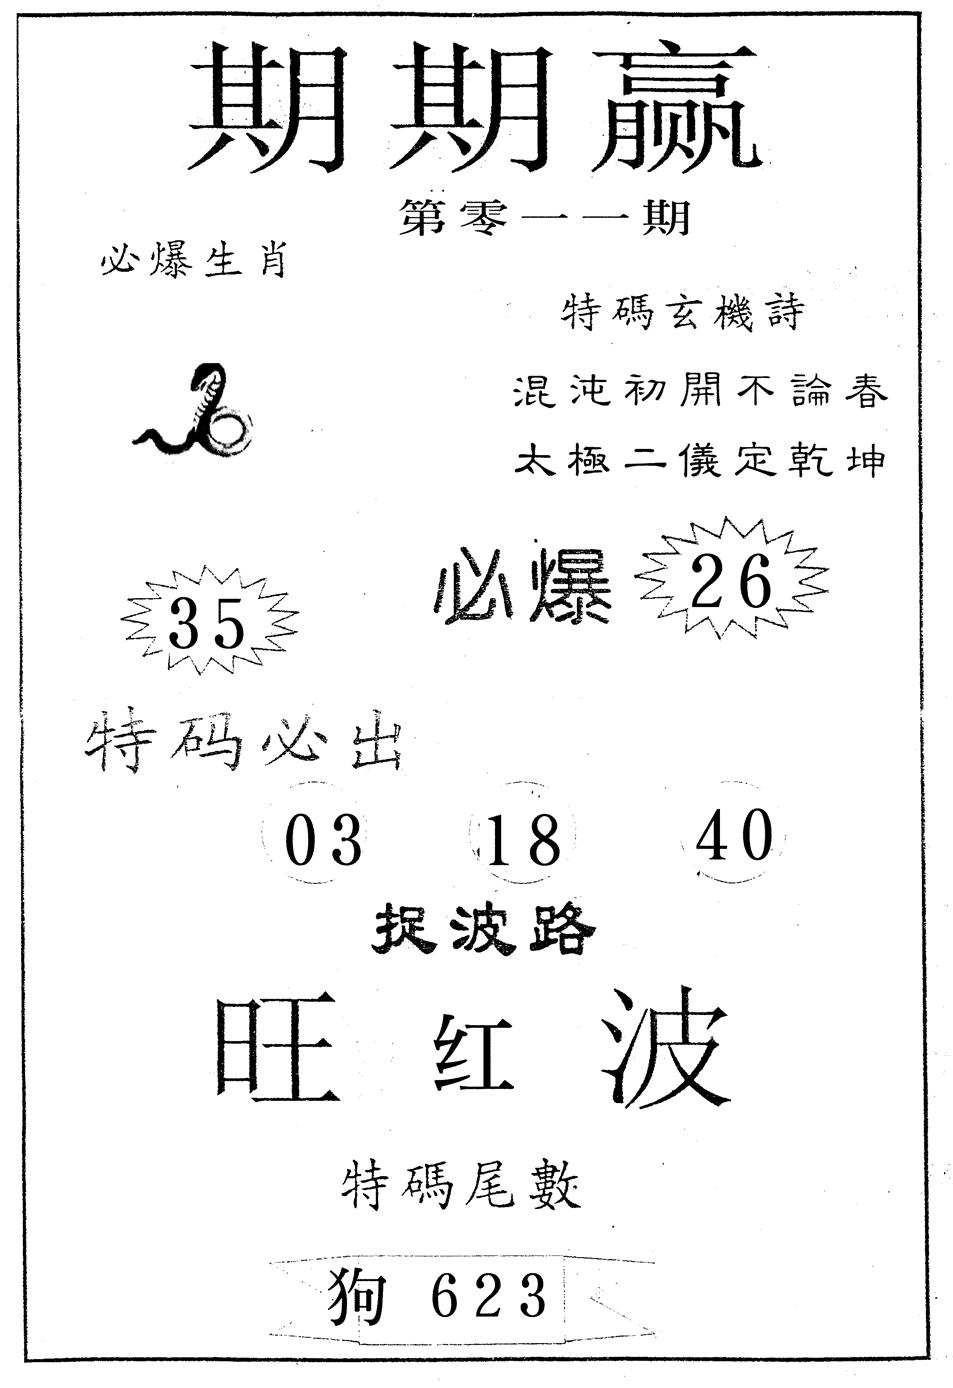 期期赢
第零一一期
必爆生肖
特碼玄機詩
混沌初開不論春
太極二儀定乾坤
必爆 26
35
特码必出
03 18 40
捉波路
旺红波
特碼尾數
狗 623